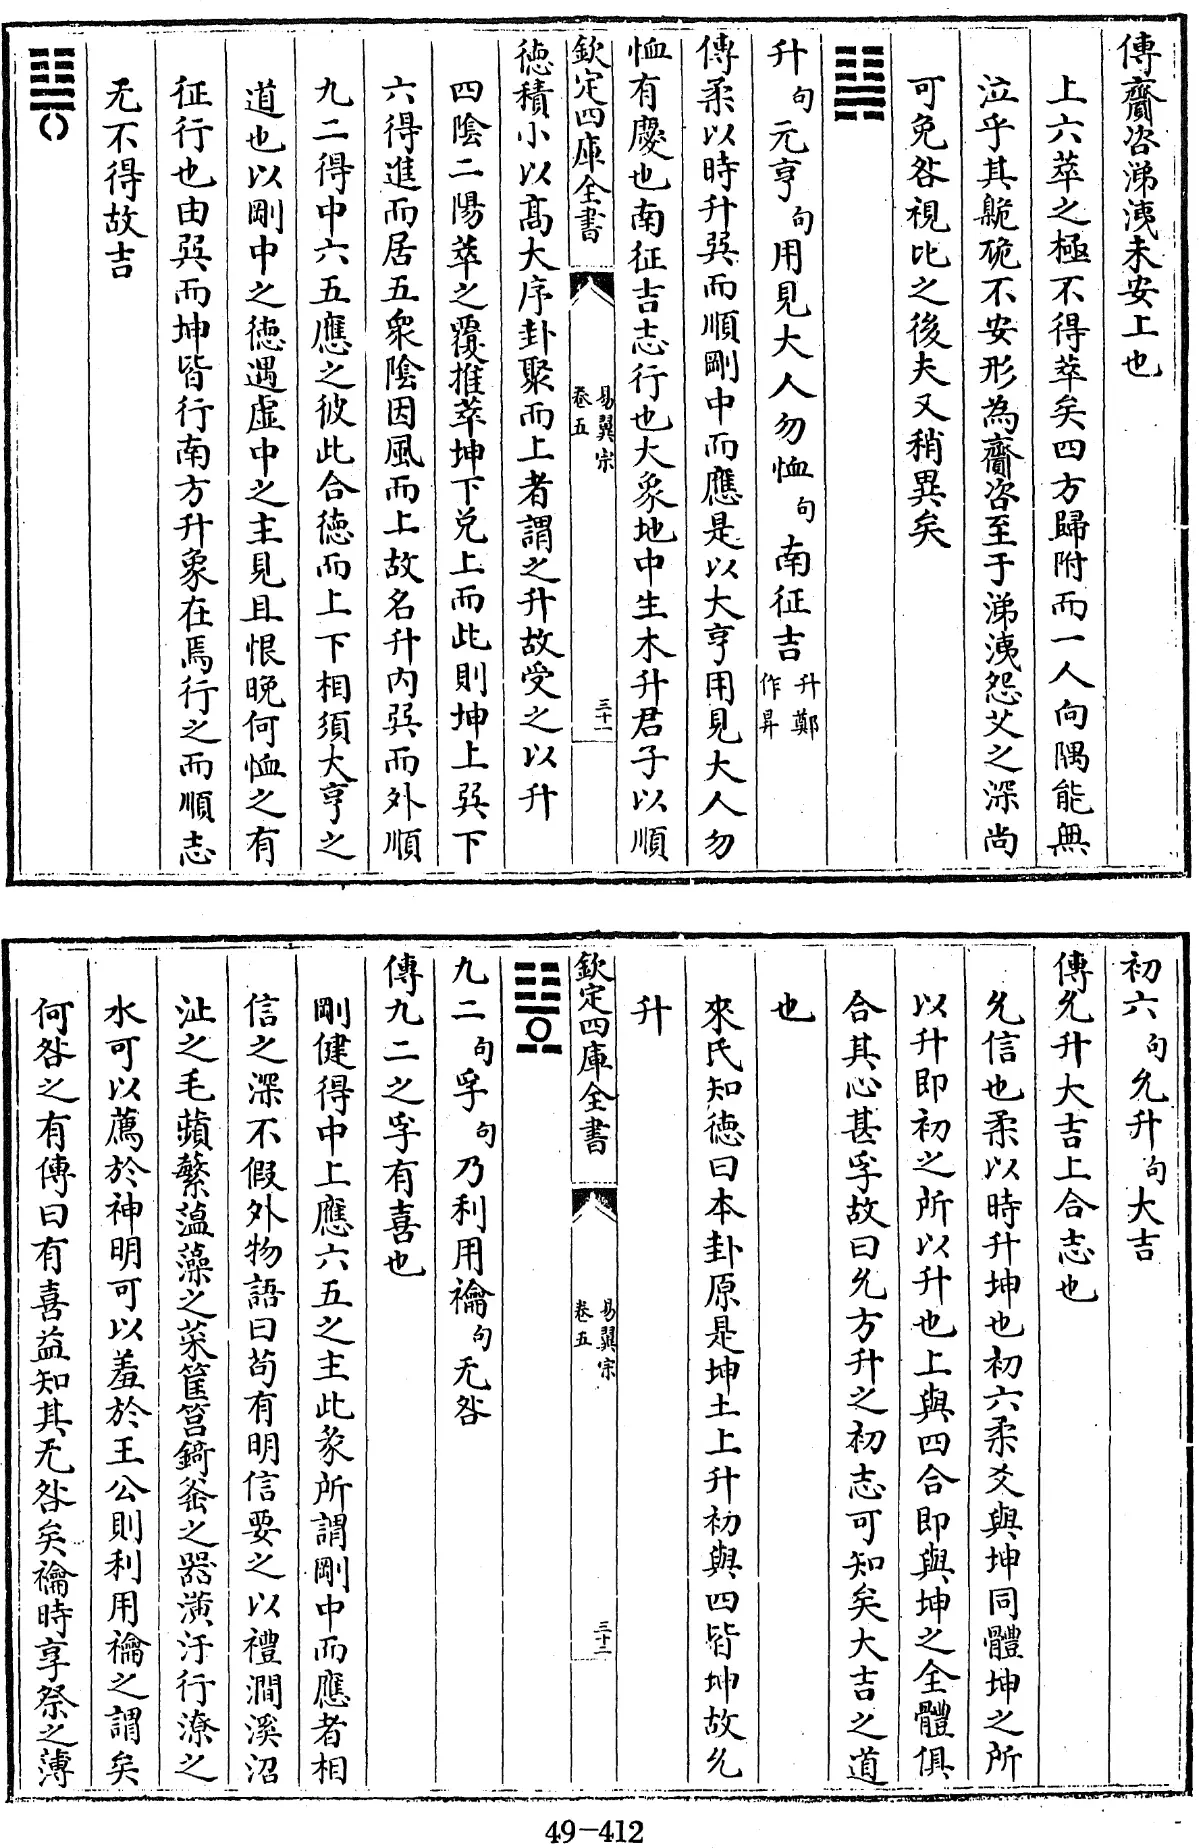 傳齎咨涕洟未安上也
上六萃之極不得萃矣四方歸附而一人向隅能無
泣乎其臲硊不安形為齎咨至于涕洟怨艾之深尚
可免咎視比之後夫又稍異矣
升句元亨句用見大人勿恤句南征吉升鄭作昇
傳柔以時升巽而順剛中而應是以大亨用見大人勿
恤有慶也南征吉志行也大象地中生木升君子以順
欽定四庫全書 易翼宗 卷五 三十一
德積小以高大序卦聚而上者謂之升故受之以升
四陰二陽萃之覆推萃坤下兌上而此則坤上巽下
六得進而居五衆陰因風而上故名升内巽而外順
九二得中六五應之彼此合德而上下相須大亨之
道也以剛中之德遇虛中之主見且恨晚何恤之有
征行也由巽而坤皆行南方升象在焉行之而順志
无不得故吉
初六句允升句大吉
傳允升大吉上合志也
允信也柔以時升坤也初六柔爻與坤同體坤之所
以升即初之所以升也上與四合即與坤之全體俱
合其心甚孚故曰允方升之初志可知矣大吉之道
也
來氏知德曰本卦原是坤土上升初與四皆坤故允
升
欽定四庫全書 易翼宗 卷五 三十二
九二句孚句乃利用禴句无咎
傳九二之孚有喜也
剛健得中上應六五之主此彖所謂剛中而應者相
信之深不假外物語曰苟有明信要之以禮澗溪沼
沚之毛蘋蘩薀藻之菜筐筥錡釜之器潢汙行潦之
水可以薦於神明可以羞於王公則利用禴之謂矣
何咎之有傳曰有喜益知其无咎矣禴時享祭之薄
49-412